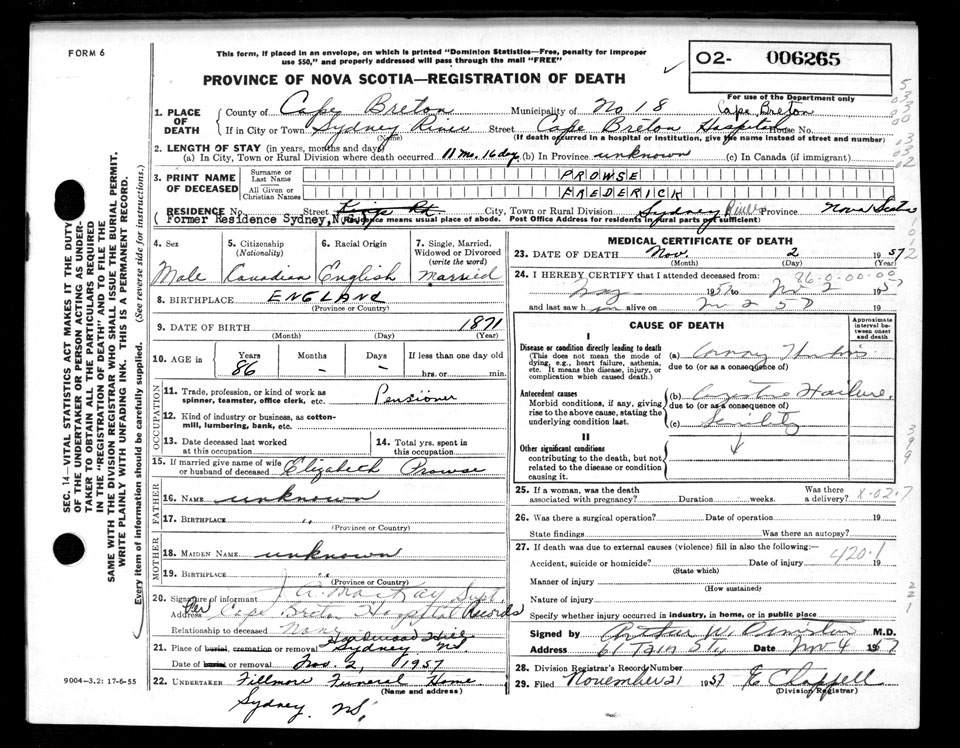 FORM 6
This form, if placed in an envelope, on which is printed "Dominion Statistics—Free, penalty for improper
use $50," and properly addressed will pass through the mail "FREE"
O2- 006265
PROVINCE OF NOVA SCOTIA—REGISTRATION OF DEATH
For use of the Department only
1. PLACE OF DEATH
County of Cape Breton Municipality of No 18 Cape Breton
If in City or Town Sydney River Street Cape Breton Hospital House No.
(Name) (If death occurred in a hospital or institution, give the name instead of street and number)
2. LENGTH OF STAY (in years, months and days)
(a) In City, Town or Rural Division where death occurred 11 mo. 16 day (b) In Province unknown (c) In Canada (if immigrant)
3. PRINT NAME OF DECEASED
Surname or Last Name PROWSE
All Given or Christian Names FREDERICK
RESIDENCE No. Street Kings Rd. City, Town or Rural Division Sydney River Province Nova Scotia
(Former Residence Sydney, N.S. Residence means usual place of abode. Post Office Address for residents in rural parts not sufficient)
4. Sex
Male
5. Citizenship (Nationality)
Canadian
6. Racial Origin
English
7. Single, Married, Widowed or Divorced (write the word)
Married
8. BIRTHPLACE ENGLAND
(Province or Country)
9. DATE OF BIRTH 1871
(Month) (Day) (Year)
10. AGE in Years Months Days If less than one day old
86 – – hrs. or min.
OCCUPATION
11. Trade, profession, or kind of work as spinner, teamster, office clerk, etc. Pensioner
12. Kind of industry or business, as cotton-mill, lumbering, bank, etc.
13. Date deceased last worked at this occupation
14. Total yrs. spent in this occupation
15. If married give name of wife or husband of deceased Elizabeth Prowse
FATHER
16. NAME unknown
17. BIRTHPLACE "
(Province or Country)
MOTHER
18. MAIDEN NAME unknown
19. BIRTHPLACE "
(Province or Country)
20. Signature of informant J. A. MacKay Supt.
Address Per Cape Breton Hospital Records
Relationship to deceased None
21. Place of burial, cremation or removal Hardwood Hill Sydney NS.
Date of burial or removal Nov. 2, 1957
22. UNDERTAKER Fillmore Funeral Home
(Name and address)
Sydney. NS.
9004—3.2: 17-6-55
SEC. 14—VITAL STATISTICS ACT MAKES IT THE DUTY
OF THE UNDERTAKER OR PERSON ACTING AS UNDER-
TAKER TO OBTAIN ALL THE PARTICULARS REQUIRED
IN THE "REGISTRATION OF DEATH" AND TO FILE THE
SAME WITH THE DIVISION REGISTRAR WHO SHALL ISSUE THE BURIAL PERMIT.
WRITE PLAINLY WITH UNFADING INK. THIS IS A PERMANENT RECORD.
Every item of information should be carefully supplied. (See reverse side for instructions.)
MEDICAL CERTIFICATE OF DEATH
23. DATE OF DEATH Nov. 2 1957
(Month) (Day)
24. I HEREBY CERTIFY that I attended deceased from: 86-0-00-00
1957 to Nov 2 1957
and last saw h im alive on Nov 2 57
CAUSE OF DEATH
Approximate interval between onset and death
I
Disease or condition directly leading to death
(This does not mean the mode of dying, e.g., heart failure, asthenia, etc. It means the disease, injury, or complication which caused death.)
(a)
due to (or as a consequence of)
Antecedent causes
Morbid conditions, if any, giving rise to the above cause, stating the underlying condition last.
(b) Failure.
due to (or as a consequence of)
(c) Senility
II
Other significant conditions
contributing to the death, but not related to the disease or condition causing it.
25. If a woman, was the death associated with pregnancy? Duration weeks. Was there a delivery? X-02.7
26. Was there a surgical operation? Date of operation 19
State findings Was there an autopsy?
27. If death was due to external causes (violence) fill in also the following:—
420.1
Accident, suicide or homicide? Date of injury 19
(State which)
Manner of injury
(How sustained)
Nature of injury
Specify whether injury occurred in industry, in home, or in public place
Signed by Arthur W. M.D.
Address Date Nov 4 1957
28. Division Registrar's Record Number
29. Filed November 21 1957 E Chappell
(Division Registrar)